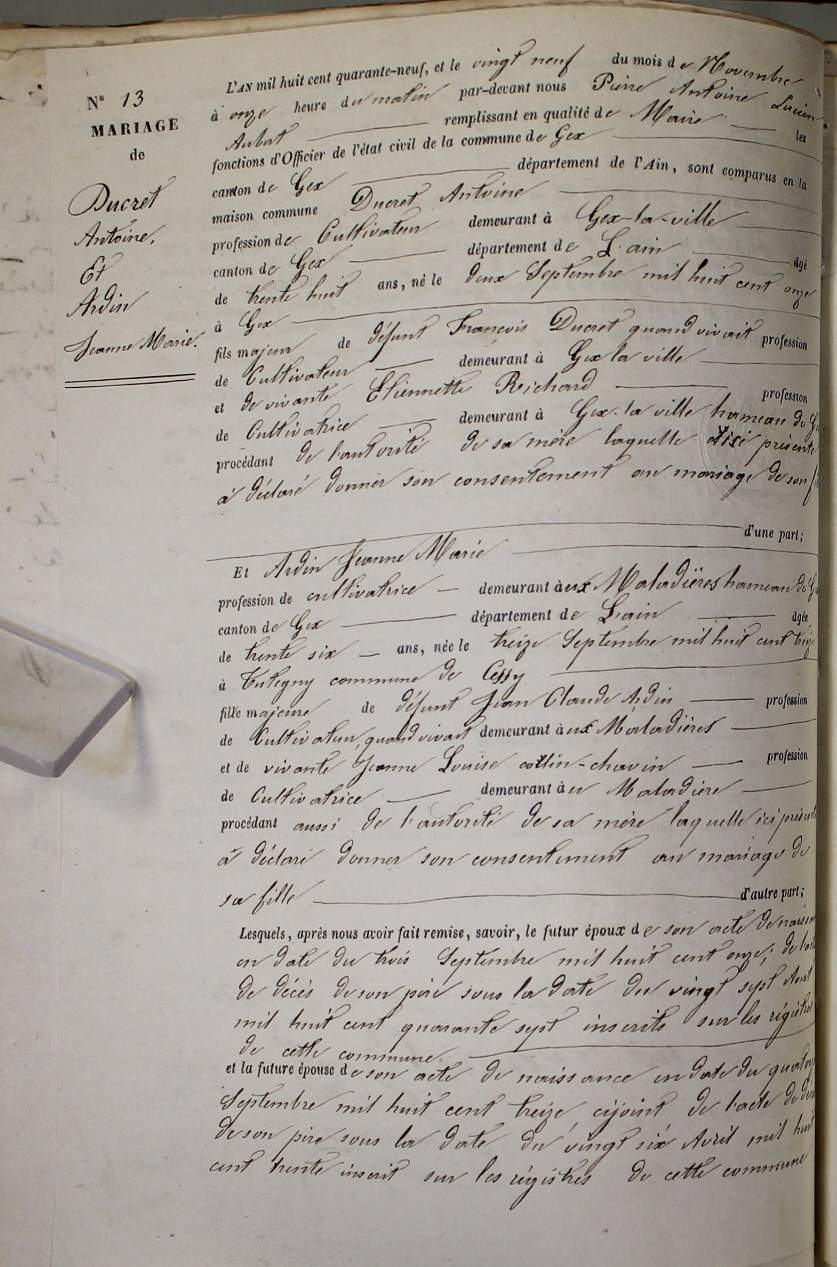 N° 13
MARIAGE
de
Ducret
Antoine,
Et
Ardin
Jeanne Marie.
L'AN mil huit cent quarante-neuf, et le vingt neuf du mois de Novembre
à onze heure du matin par-devant nous Pierre Antoine Lucien
Aubert remplissant en qualité de Maire les
fonctions d'Officier de l'état civil de la commune de Gex
canton de Gex département de l'Ain, sont comparus en la
maison commune Ducret Antoine
profession de Cultivateur demeurant à Gex-la-ville
canton de Gex département de L'ain âgé
de trente huit ans, né le deux Septembre mil huit cent onze
à Gex
fils majeur de défunt François Ducret quand vivait profession
de Cultivateur demeurant à Gex la ville
et de vivante Etiennette Reichard profession
de Cultivatrice demeurant à Gex-la ville hameau de
procédant de l'autorité de sa mère laquelle présente
à déclaré donner son consentement au mariage de son
d'une part;
Et Ardin Jeanne Marie
profession de cultivatrice demeurant à eux Maladières hameau de
canton de Gex département de L'ain âgée
de trente six ans, née le treize Septembre mil huit cent treize
à Tutegny commune de Cessy
fille majeure de défunt Jean Claude Ardin profession
de Cultivateur, quand vivait demeurant à eux Maladières
et de vivante Jeanne Louise cottin-chavin profession
de Cultivatrice demeurant à eu Maladière
procédant aussi de l'autorité de sa mère laquelle ici présente
à déclaré donner son consentement au mariage de
sa fille d'autre part;
Lesquels, après nous avoir fait remise, savoir, le futur époux de son acte de naissan
en date du trois Septembre mil huit cent onze; de
de décès de son père sous la date du vingt sept Aout
mil huit cent quarante sept inscrits sur les régistres
de cette commune.
et la future épouse de son acte de naissance en date du quatorze
Septembre mil huit cent treize, cijoint de l'acte de
de son père sous la date du vingt six Avril mil huit
cent trente inscrit sur les régistres de cette commune